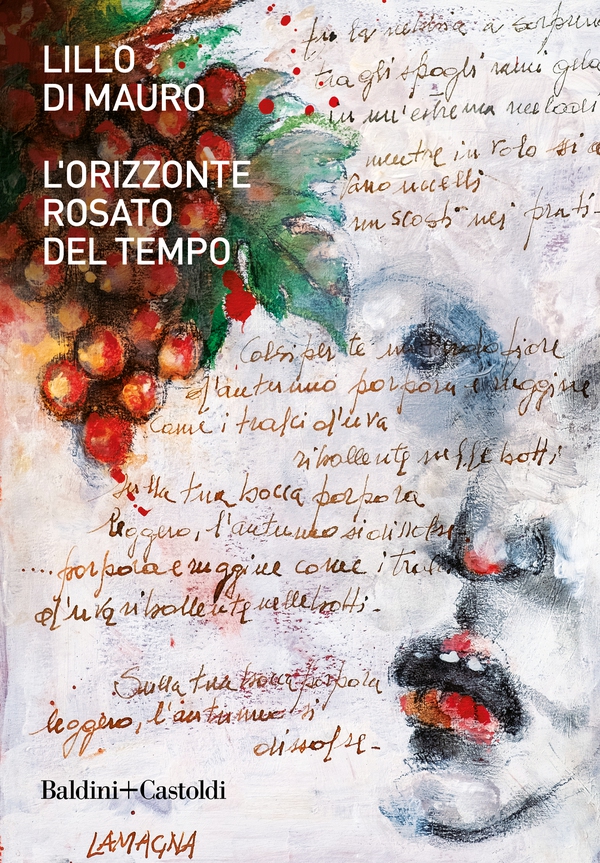 LILLO
DI MAURO
L'ORIZZONTE
ROSATO
DEL TEMPO
tra gli spogli rami
in un'estrema
mentre in volo si
uccelli
nei prati-
Colsi per te un fiore
d'autunno porpora e ruggine
come i tralci d'uva
ribollente nelle botti
sulla tua bocca porpora
leggero, l'autunno si dissolse
.... porpora e ruggine come i
d'uva ribollente nelle botti-
Sulla tua bocca porpora
leggero, l'autunno si
dissolse-
Baldini+Castoldi
LAMAGNA